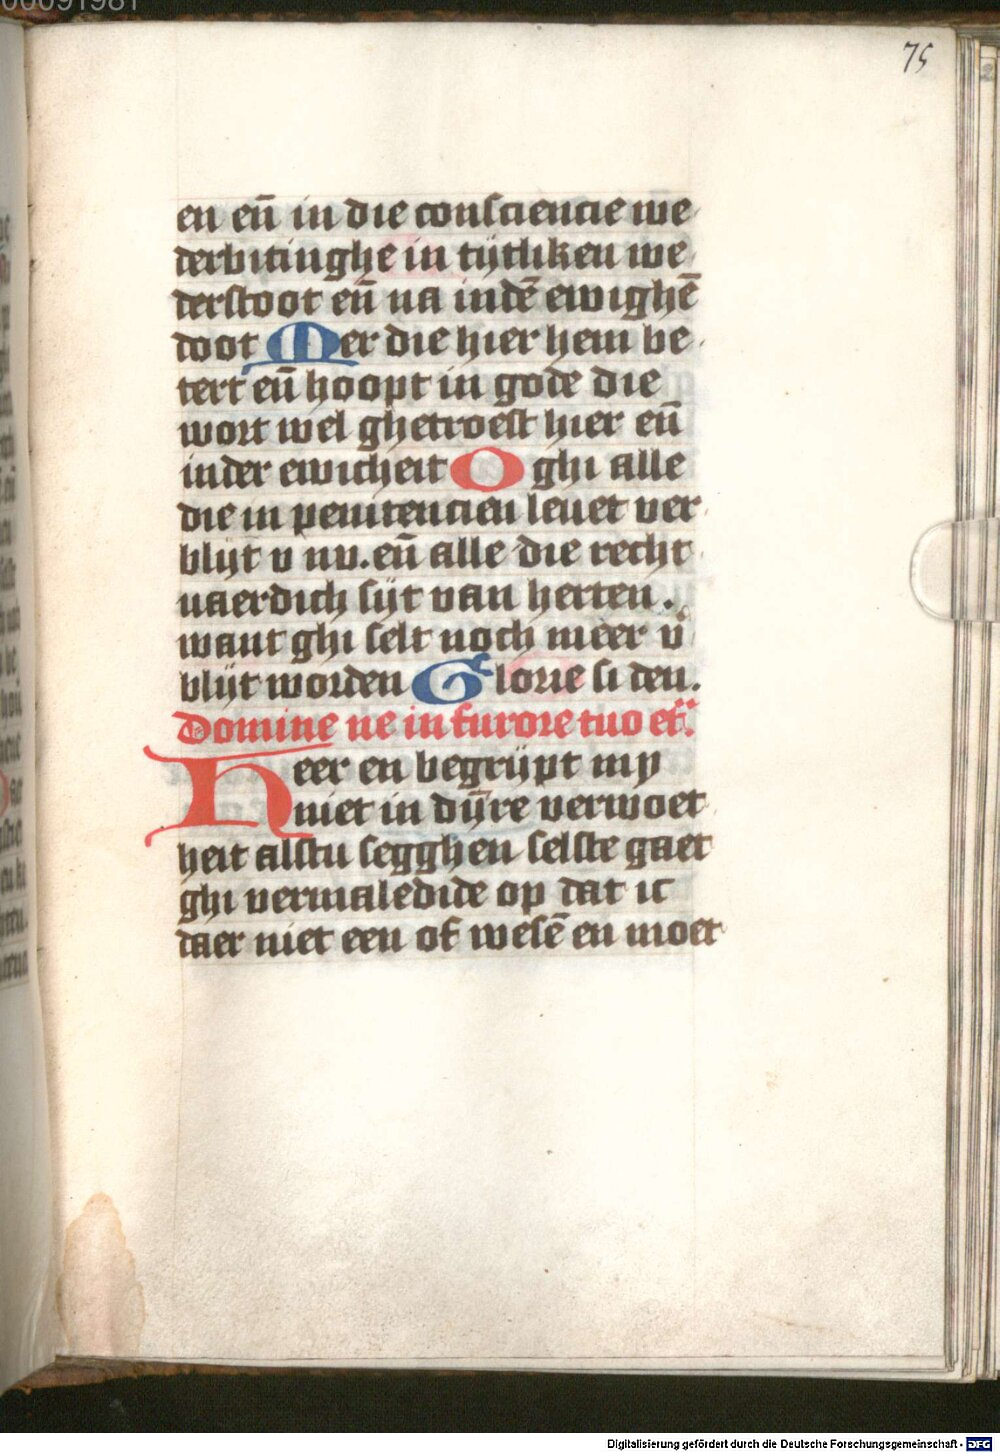 00091981
75
en eñ in die consciencie we
derbitinghe in tijtliken we
derstoot eñ na indē ewighē
doot Mer die hier hem be
tert eñ hoopt in gode die
wort wel ghetroest hier eñ
inder ewicheit O ghi alle
die in penitencien leuet ver
blijt v nv. eñ alle die recht
uaerdich sijt van herten.
want ghi selt noch meer v̄
blijt worden Glorie si den.
Domine ne in furore tuo etc̄.
Heer en begrijpt my
niet in dijnre verwoet
heit alstu segghen selste gaet
ghi vermaledide op dat ic
daer niet een of wesē en moet
Digitalisierung gefördert durch die Deutsche Forschungsgemeinschaft - DFG